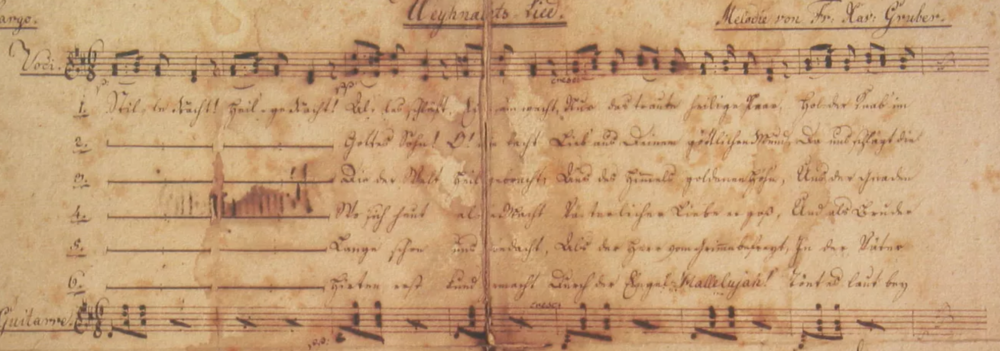 Weyhnachts-Lied.
Melodie von Fr. Xav: Gruber.
Voci.
1. Stil-le Nacht! Heil-ige Nacht! Al-les schläft. Ei wacht, Nur das traute heilige Paar. Holder Knab im
2. Gottes Sohn! O! wie lacht Lieb' aus Deinem göttlichen Mund, Da uns schlägt die
3. Die der Welt Heil gebracht; Aus des Himmels goldenen Höhn, Aus der Gnaden
4. Wo sich heut alle Macht Väterlicher Liebe ergoß, Und als Bruder
5. Lange schon uns bedacht, Als der Herr vom Grimme befreyt, In der Väter
6. Hirten erst kund gemacht Durch der Engel Hallelujah! Tönt es laut bey
Guitarre.